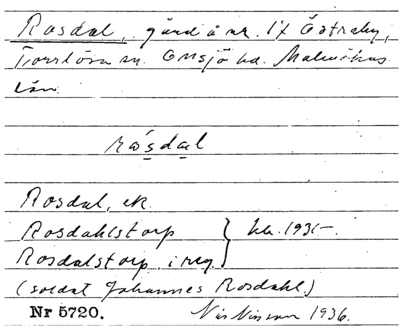 Rosdal, gård å nr. 17 Östraby,
Torrlösa sn. Onsjö hd. Malmöhus
län.
rósdal
Rosdal, ek.
Rosdahlstorp } hb. 1931–
Rosdalstorp, i reg.
(soldat Johannes Rosdahl.)
Nr 5720. Nils Nilsson 1936.